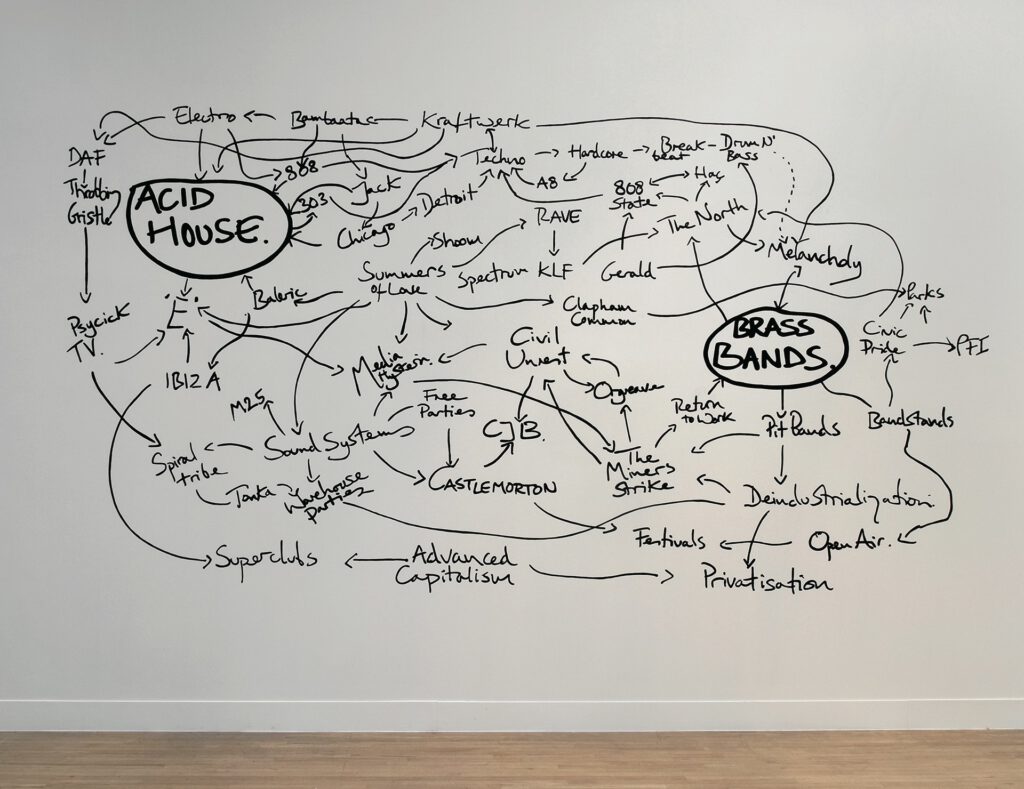 Electro
Bambaataa
Kraftwerk
DAF
808
Techno
Hardcore
Break-
beat
Drum N'
Bass
Throbbin
Gristle
ACID
HOUSE.
303
Jack
Chicago
Detroit
A8
808
State
Haç
RAVE
The North
Shoom
Summers
of Love
Spectrum
KLF
Gerald
Melancholy
'E'.
Baleric
Clapham
Common
Parks
Psycick
TV.
BRASS
BANDS.
Civic
Pride
PFI
Civil
Unrest
Media
Hysteria.
IBIZA
M25
Free
Parties
Orgreave
Return
to Work
Pit Bands
Bandstands
CJB.
Sound Systems
Spiral
tribe
The
Miners
Strike
Tonka
Warehouse
Parties
CASTLEMORTON
Deindustrialization.
Festivals
Open Air.
Superclubs
Advanced
Capitalism
Privatisation